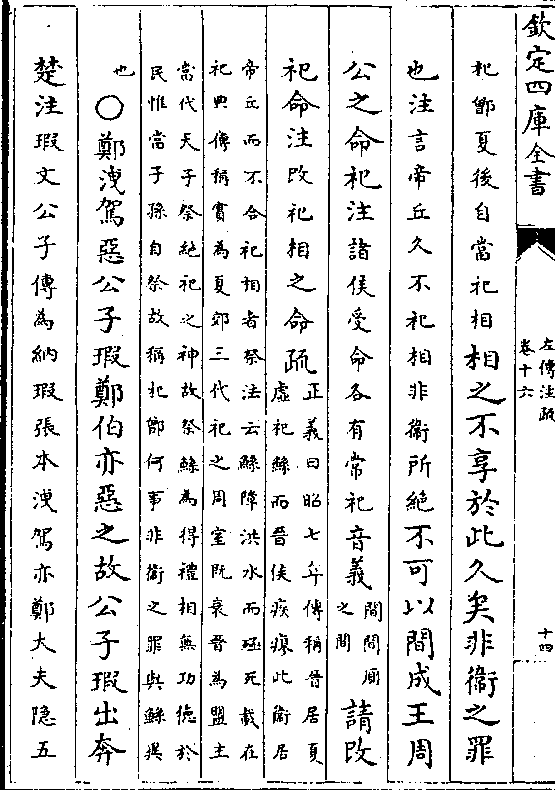 欽定四庫全書
左傳注疏
卷十六
十四
杞鄫夏後自當祀相相之不享於此久矣非衞之罪
也注言帝丘久不祀相非衞所絕不可以間成王周
公之命祀注諸侯受命各有常祀音義
間間廁
之間
請改
祀命注改祀相之命疏
正義曰昭七年傳稱晉居夏
虛祀鯀而晉侯疾瘳此衞居
帝丘而不合祀相者祭法云鯀障洪水而殛死載在
祀典傳稱實為夏郊三代祀之周室既衰晉為盟主
當代天子祭絕祀之神故祭鯀為得禮相無功德於
民惟當子孫自祭故稱杞鄫何事非衞之罪與鯀異
也
○鄭洩駕惡公子瑕鄭伯亦惡之故公子瑕出奔
楚注瑕文公子傳為納瑕張本洩駕亦鄭大夫隱五